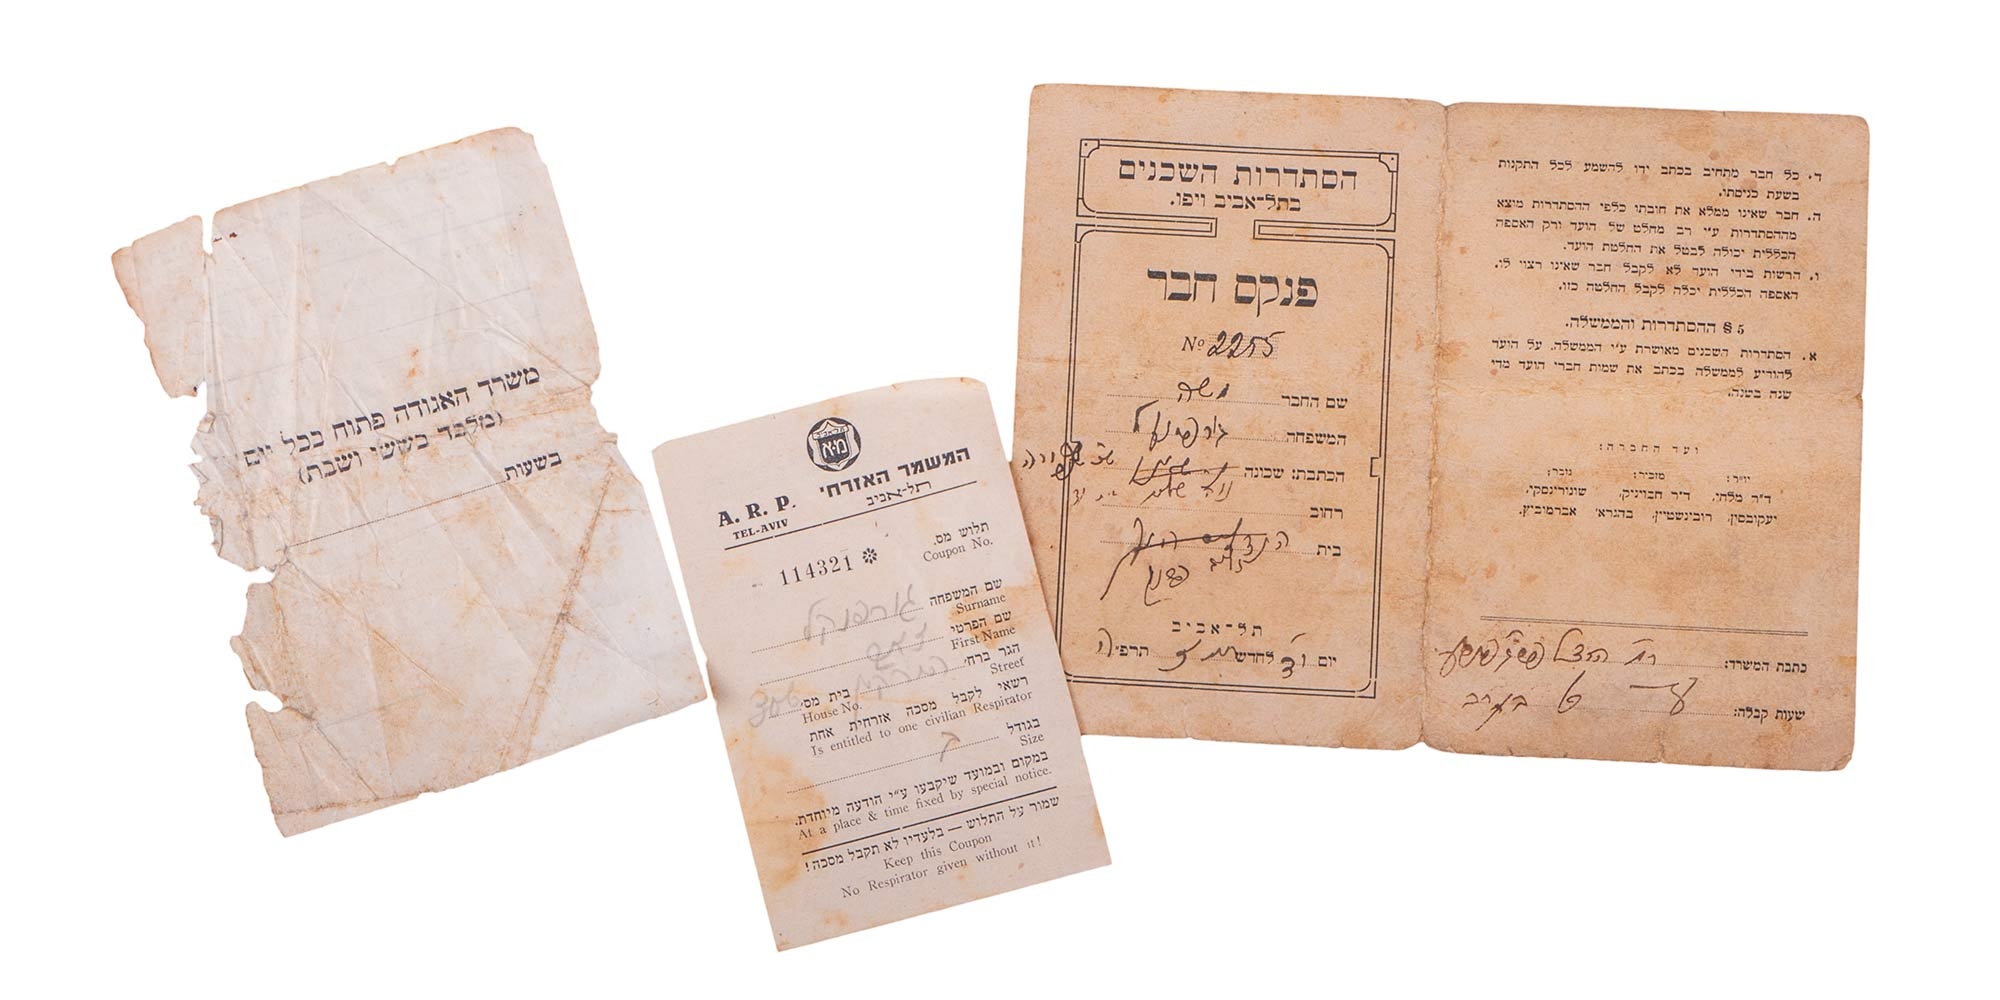 משרד האגודה פתוח בכל יום
(מלבד בששי ושבת)
בשעות
תל־אביב
מ.א
המשמר האזרחי
תל־אביב
A. R. P.
TEL-AVIV
תלוש מס.
Coupon No.
114321
שם המשפחה גורפינקל
Surname
שם הפרטי
First Name
הגר ברח׳
Street
בית מס׳
House No.
רשאי לקבל מסכה אזרחית אחת
Is entitled to one civilian Respirator
בגודל
Size
במקום ובמועד שיקבעו ע״י הודעה מיוחדת.
At a place & time fixed by special notice.
שמור על התלוש — בלעדיו לא תקבל מסכה!
Keep this Coupon
No Respirator given without it!
הסתדרות השכנים
בתל־אביב ויפו.
פנקס חבר
No 2255
שם החבר משה
המשפחה גורפינקל
הכתבת: שכונה
נוה שלום
רחוב
בית
תל־אביב
יום לחדש תרפ״ה
ד. כל חבר מתחיב בכתב ידו להשמע לכל התקנות
בשעת כניסתו.
ה. חבר שאינו ממלא את חובתו כלפי ההסתדרות מוצא
מההסתדרות ע״י רב מחלט של הועד ורק האספה
הכללית יכולה לבטל את החלטת הועד.
ו. הרשות בידי הועד לא לקבל חבר שאינו רצוי לו.
האספה הכללית יכלה לקבל החלטה כזו.
§ 5 ההסתדרות והממשלה.
א. הסתדרות השכנים מאושרת ע״י הממשלה. על הועד
להודיע לממשלה בכתב את שמות חברי הועד מדי
שנה בשנה.
ועד החברה:
יו״ר: מזכיר: גזבר:
ד״ר מלחי, ד״ר חבויניק, שוגורינסקי,
יעקובסון, רובינשטיין, בהגרא׳ אברמוביץ,
כתבת המשרד:
שעות קבלה: בערב